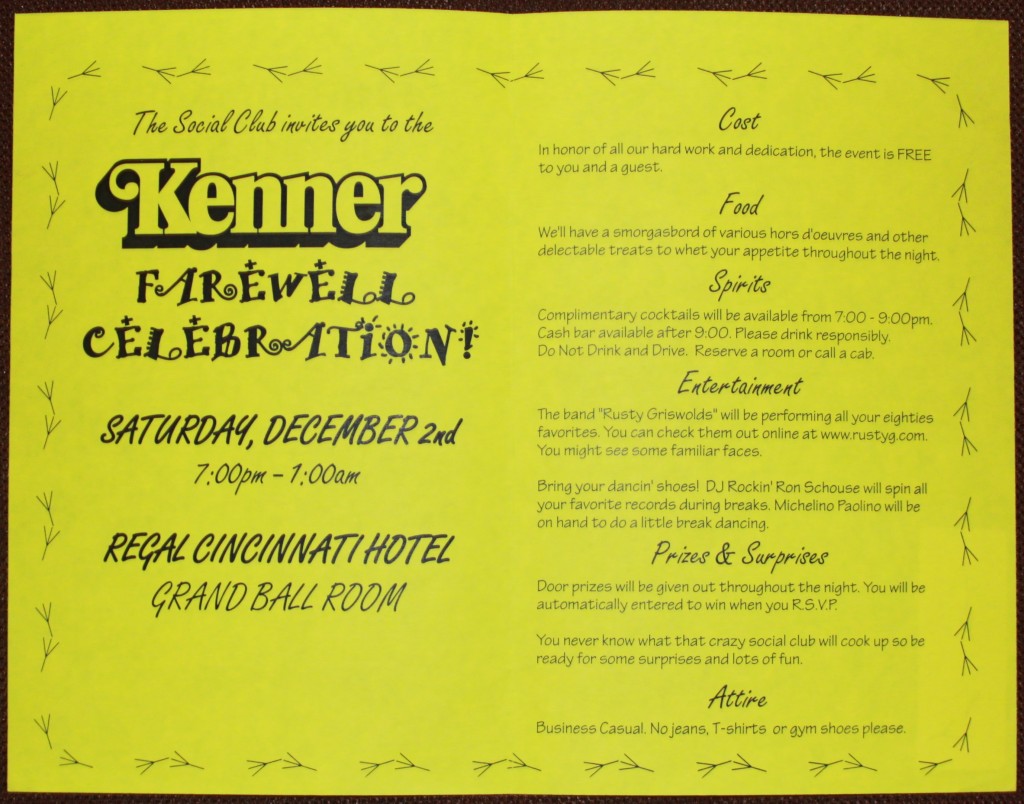 The Social Club invites you to the
Kenner
FAREWELL
CELEBRATION!
SATURDAY, DECEMBER 2nd
7:00pm – 1:00am
REGAL CINCINNATI HOTEL
GRAND BALL ROOM
Cost
In honor of all our hard work and dedication, the event is FREE
to you and a guest.
Food
We'll have a smorgasbord of various hors d'oeuvres and other
delectable treats to whet your appetite throughout the night.
Spirits
Complimentary cocktails will be available from 7:00 - 9:00pm.
Cash bar available after 9:00. Please drink responsibly.
Do Not Drink and Drive. Reserve a room or call a cab.
Entertainment
The band "Rusty Griswolds" will be performing all your eighties
favorites. You can check them out online at www.rustyg.com.
You might see some familiar faces.
Bring your dancin' shoes! DJ Rockin' Ron Schouse will spin all
your favorite records during breaks. Michelino Paolino will be
on hand to do a little break dancing.
Prizes & Surprises
Door prizes will be given out throughout the night. You will be
automatically entered to win when you R.S.V.P.
You never know what that crazy social club will cook up so be
ready for some surprises and lots of fun.
Attire
Business Casual. No jeans, T-shirts or gym shoes please.